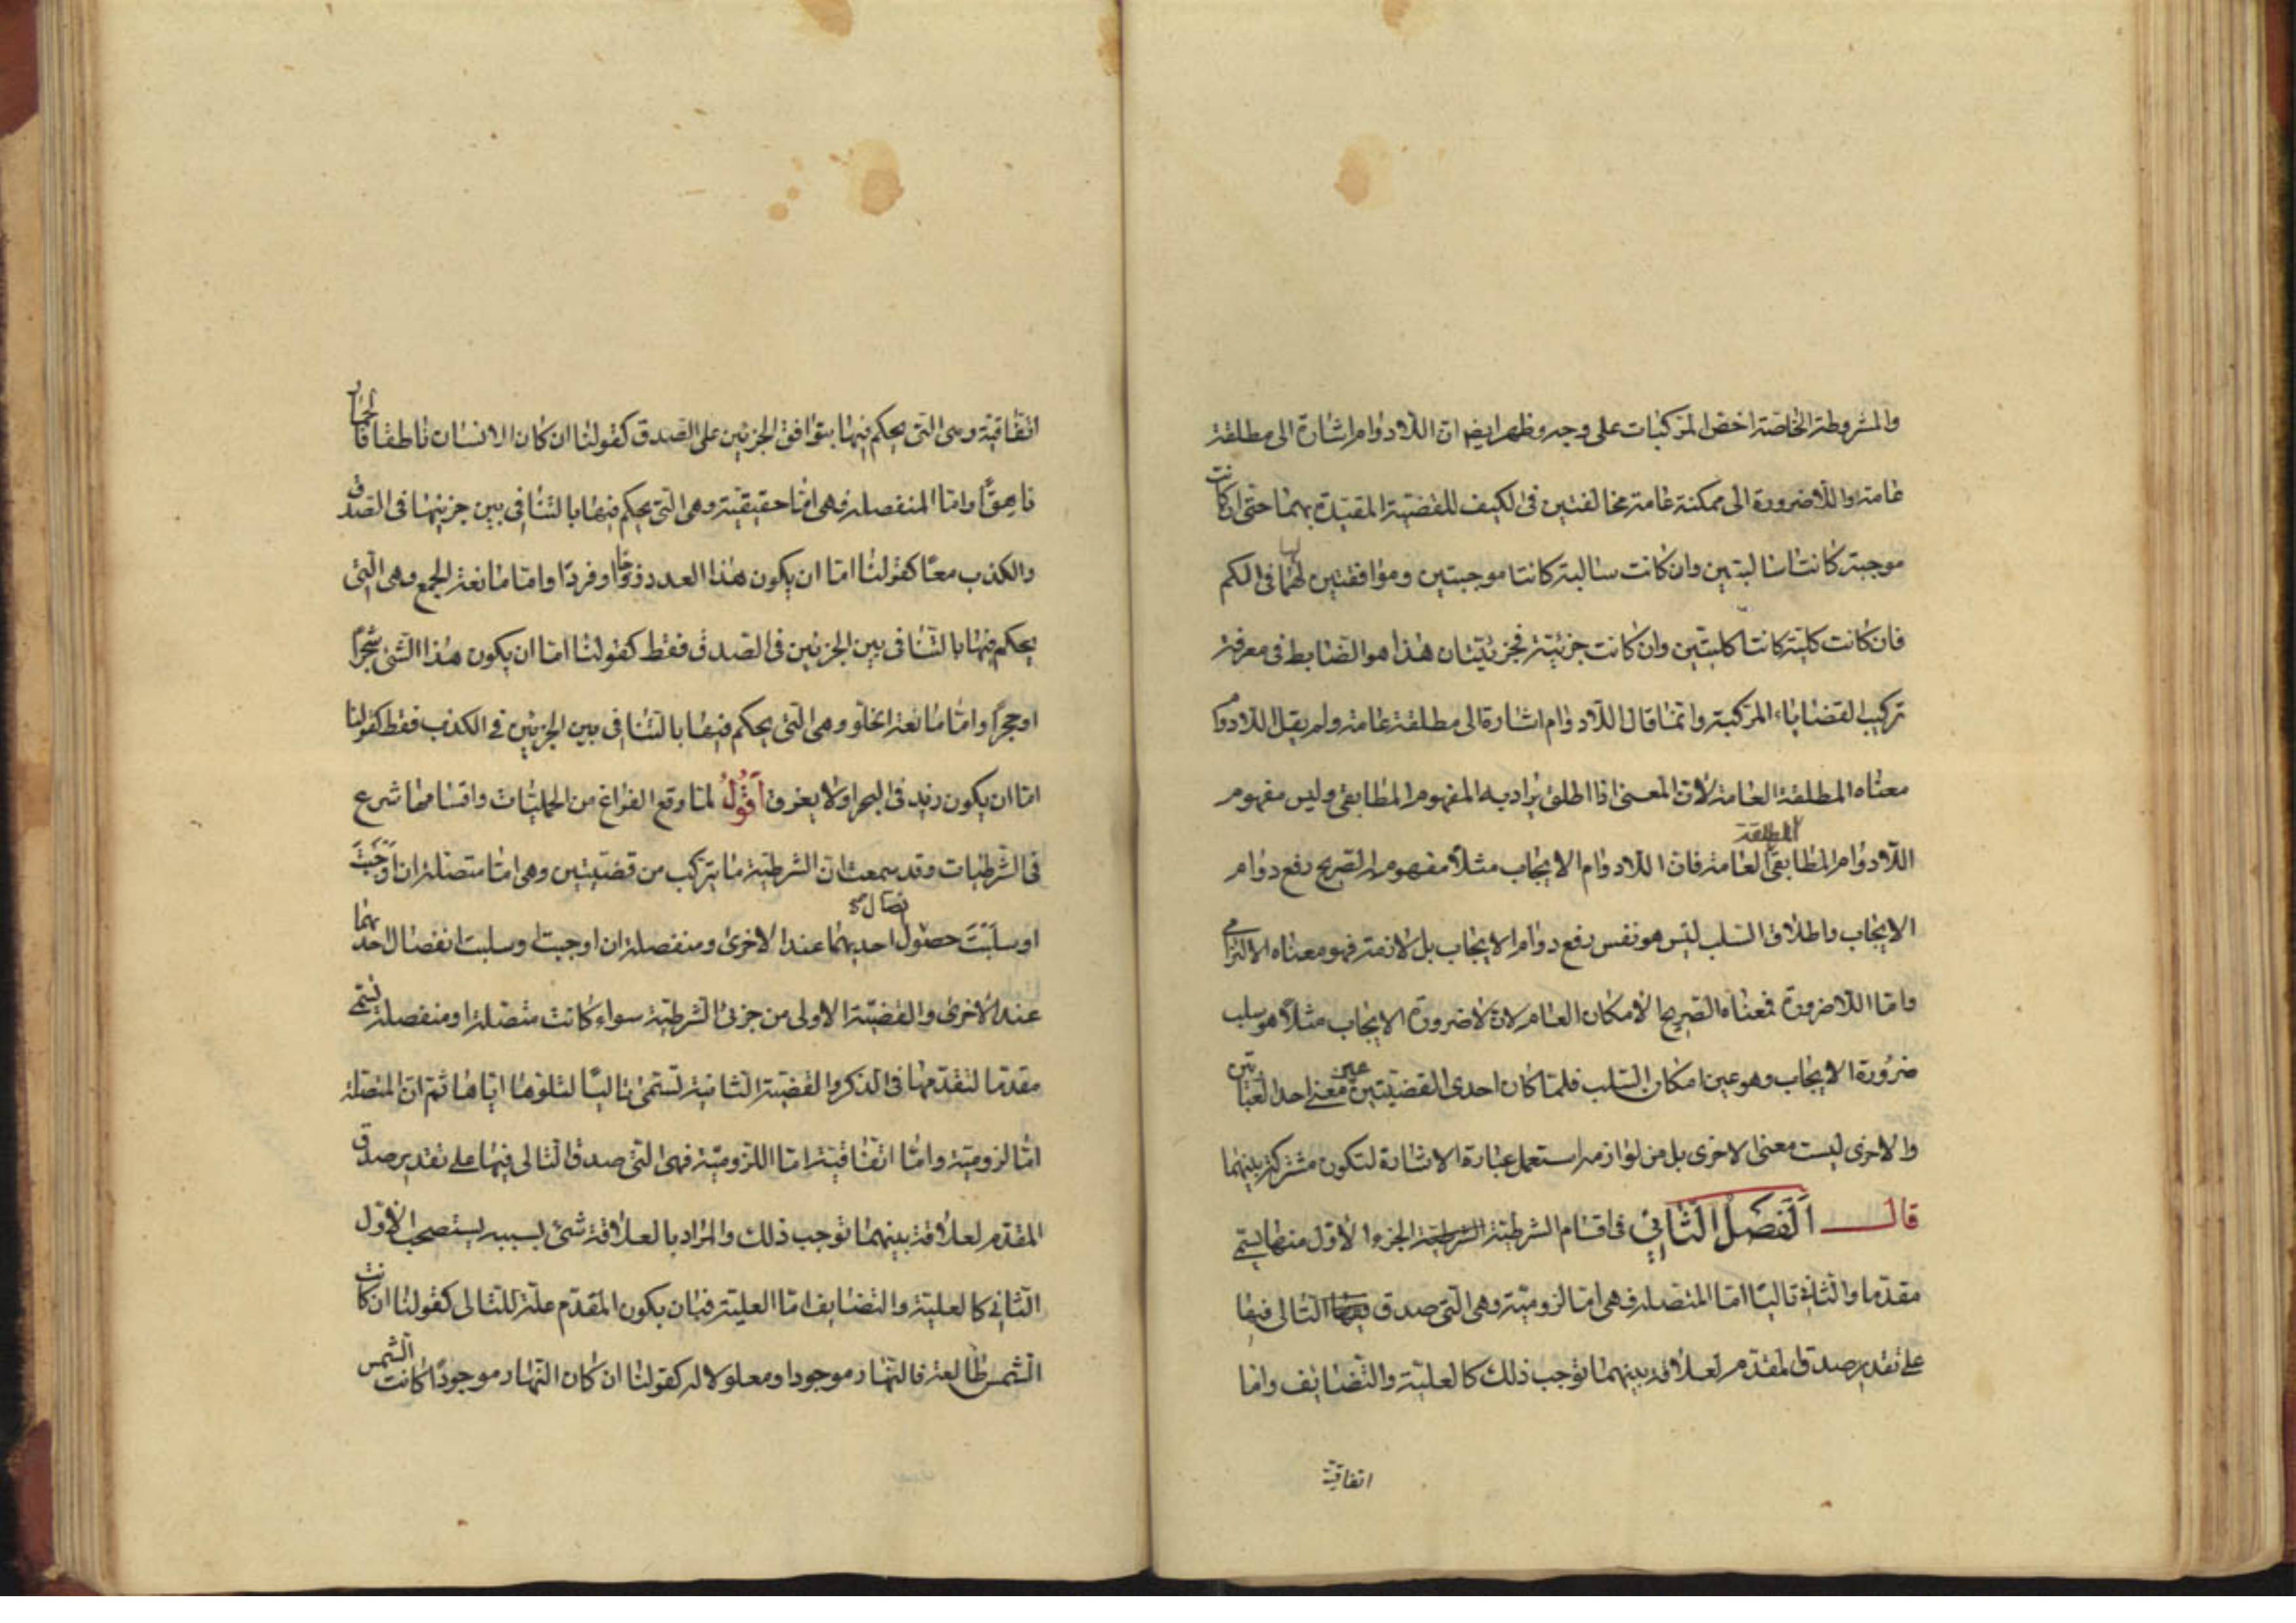 والمشروطة الخاصة اخص المركبات على وجه وظهر ايضا ان اللادوام اشارة الى مطلقة
عامة واللاضرورة الى ممكنة عامة مخالفتين فى الكيف للقضية المقيدة بهما حتى ان كانت
موجبة كانتا سالبتين وان كانت سالبة كانتا موجبتين وموافقتين لهما فى الكم
فان كانت كلية كانتا كليتين وان كانت جزئية فجزئيتان هذا هو الضابط فى معرفة
تركيب القضاياء المركبة وانما قال اللادوام اشارة الى مطلقة عامة ولم يقل اللادوام
معناه المطلقة العامة لان المعنى اذا اطلق يراد به المفهوم المطابقى وليس مفهوم
اللادوام المطابقى المطلقة العامة فان اللادوام الايجاب مثلاً مفهومه الصريح رفع دوام
الايجاب واطلاق السلب ليس هو نفس رفع دوام الايجاب بل لازمة فهو معناه الالتزامى
واما اللاضرورة فمعناه الصريح الامكان العام لان لاضرورة الايجاب مثلاً هو سلب
ضرورة الايجاب وهو عين امكان السلب فلما كان احدى القضيتين عين معنى احد العبارتين
والاخرى ليست معنى الاخرى بل من لوازمه استعمل عبارة الاشارة لتكون مشتركة بينهما
قال اَلْفَصْلُ الثَّانِىْ فى اقسام الشرطية الجزء الاول منها يسمى
مقدما والثانى تاليًا اما المتصلة فهى اما لزومية وهى التى صدق التالى فيها
على تقدير صدق المقدم لعلاقة بينهما توجب ذلك كالعلية والتضايف واما
اتفاقية
اتفاقية وهى التى يحكم فيها بتوافق الجزئين على الصدق كقولنا ان كان الانسان ناطقا فالحمار
ناهقًا واما المنفصلة فهى اما حقيقية وهى التى يحكم فيها بالتنافى بين جزئيها فى الصدق
والكذب معًا كقولنا اما ان يكون هذا العدد زوجًا او فردًا واما مانعة الجمع وهى التى
يحكم فيها بالتنافى بين الجزئين فى الصدق فقط كقولنا اما ان يكون هذا الشئ شجرًا
او حجرًا واما مانعة الخلو وهى التى يحكم فيها بالتنافى بين الجزئين فى الكذب فقط كقولنا
اما ان يكون زيد فى البحر او لا يغرق اَقُوْلُ لما وقع الفراغ من الحمليات واقسامها شرع
فى الشرطيات وقد سمعت ان الشرطية ما يتركب من قضيتين وهى اما متصلة ان اَوْجَبَتْ
او سلبَتْ حصول احديهما عند الاخرى ومنفصلة ان اوجبت او سلبت انفصال احديهما
عند الاخرى والقضية الاولى من جزئى الشرطية سواء كانت متصلة او منفصلة تسمى
مقدما لتقدمها فى الذكر والقضية الثانية تسمى تاليًا لتلوها اياها ثم ان المتصلة
اما لزومية واما اتفاقية اما اللزومية فهى التى صدق التالى فيها على تقدير صدق
المقدم لعلاقة بينهما توجب ذلك والمراد بالعلاقة شئ بسببه يستصحب الاول
الثانى كالعلية والتضايف اما العلية فبان يكون المقدم علة للتالى كقولنا ان كانت
الشمس طالعة فالنهار موجود او معلولا له كقولنا ان كان النهار موجودًا كانت الشمس